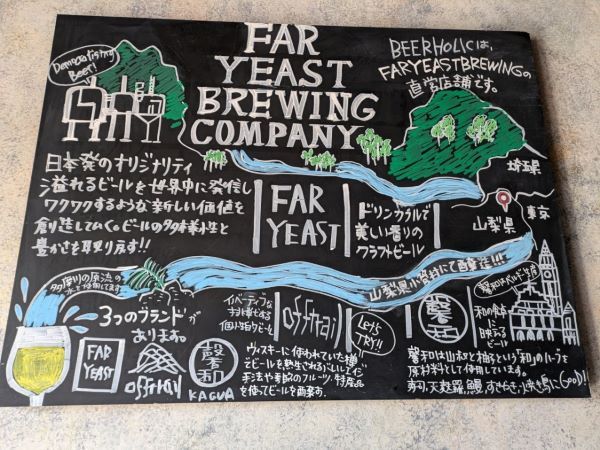 FAR
YEAST
BREWING
COMPANY
Democratising
Beer!
BEERHOLICは、
FARYEASTBREWINGの
直営店舗です。
埼玉県
東京
山梨県
日本発のオリジナリティ
溢れるビールを世界中に発信し
ワクワクするような新しい価値を
創造していくビールの多様性と
豊かさを取り戻す!!
FAR
YEAST
ドリンカブルで
美しい香りの
クラフトビール
山梨県小菅村にて醸造!!!
多摩川の源流の
水を使用してます
3つのブランドが
あります。
FAR
YEAST
offtrail
馨和
KAGUA
イノベーティブな
個性的なビール
offtrail
Let's
TRY!!
ウィスキーに使われていた樽
でビールを熟成させるバレルエイジ
手法や季節のフルーツ、特産品
を使ってビールを醸造。
馨和
馨和はベルギー生産
和の食卓
ビール
馨和は山椒と柚子という「和」のハーブを
原材料として使用しています。
寿司、天麩羅、鰻、すきやき、焼き鳥にGOOD!